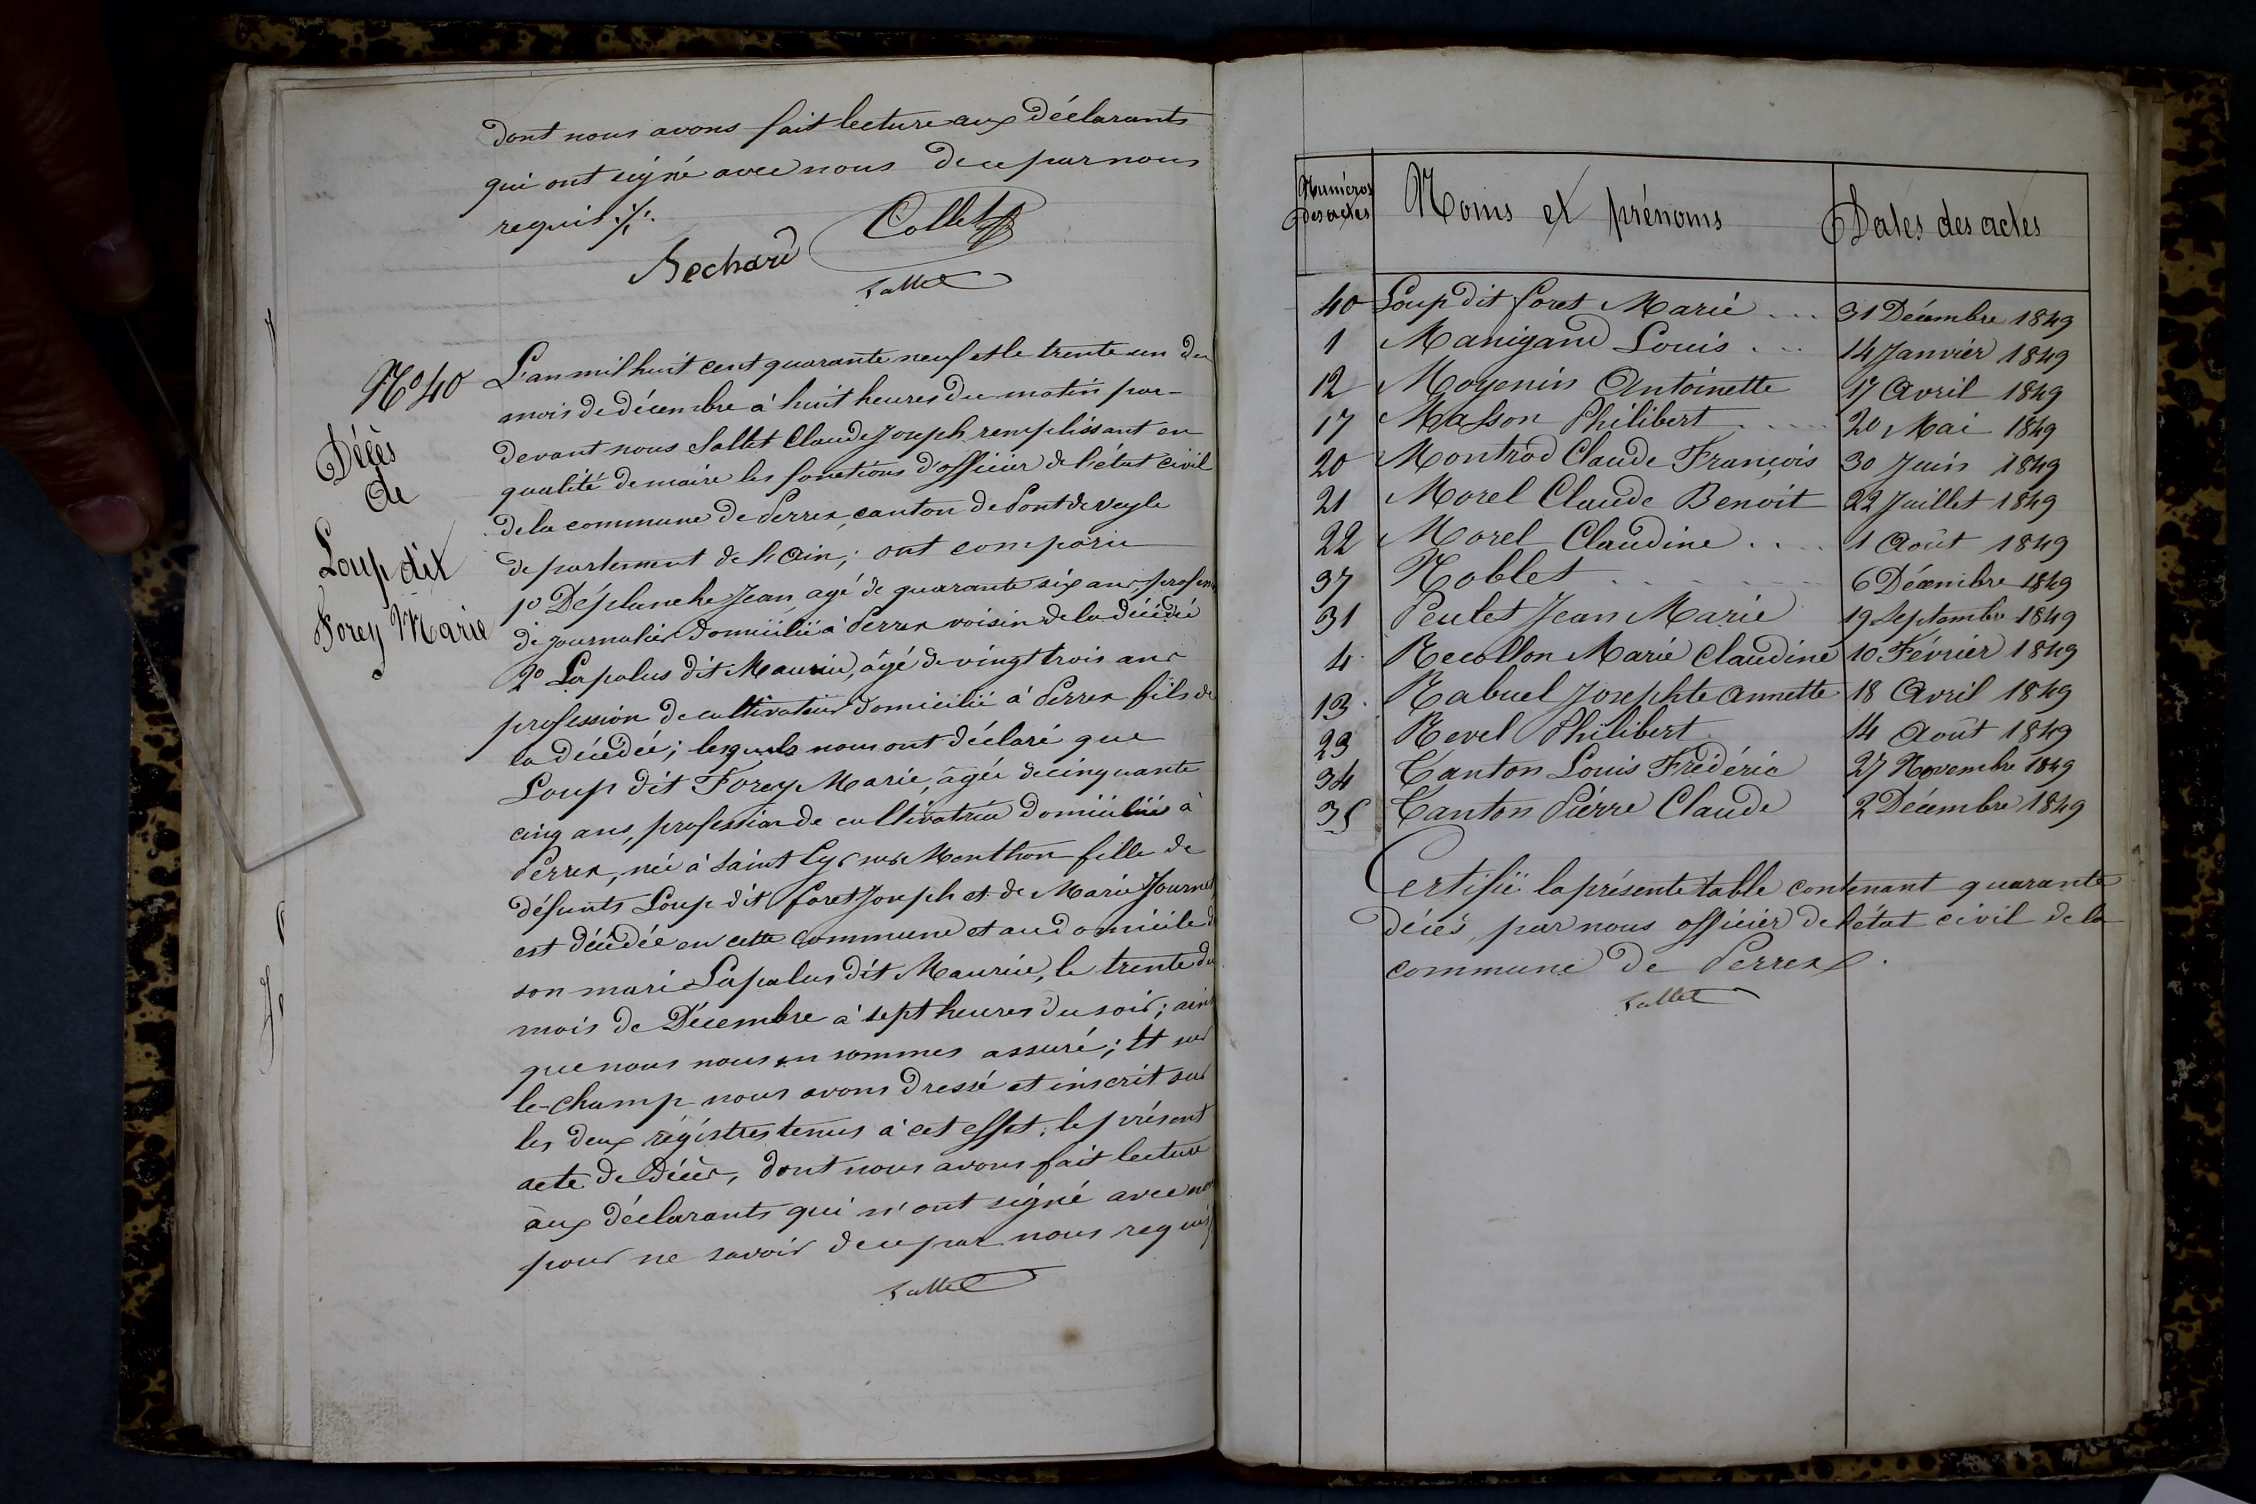 dont nous avons fait lecture aux déclarants
qui ont signé avec nous de ce par nous
requis ./.
Collet
Bechard
Sallet
N° 40
Décès
de
Loup dit
Forey Marie
L'an mil huit cent quarante neuf et le trente un du
mois de décembre à huit heures du matin par-
devant nous Sallet Claude Joseph remplissant en
qualité de maire les fonctions d'officier de l'état civil
de la commune de Perrex, canton de Pont de veyle
departement de l'Ain; ont comparu
1° Déplanche Jean, agé de quarante six ans, profession
de journalier domicilié à Perrex voisin de la décédée
2° Lapalus dit Maurice, âgé de vingt trois ans
profession de cultivateur domicilié à Perrex fils de
la décédée; lesquels nous ont déclaré que
Loup dit Forey Marie, âgée de cinquante
cinq ans, profession de cultivatrice domiciliée à
Perrex, née à Saint Cyr sur Menthon fille de
défunts Loup dit foret Joseph et de Marie Journet
est décédée en cette commune et au domicile de
son mari Lapalus dit Maurice, le trente du
mois de Décembre à sept heures du soir; ainsi
que nous nous en sommes assuré; Et sur
le-champ nous avons dressé et inscrit sur
les deux régistres tenus à cet effet, le présent
acte de Décès, dont nous avons fait lecture
aux déclarants qui n'ont signé avec nous
pour ne savoir de ce par nous requis
Sallet
Numéros des actes Noms et prénoms Dates des actes
40 Loup dit foret Marie ... 31 Décembre 1849
1 Manigand Louis ... 14 Janvier 1849
12 Moyenin Antoinette 17 Avril 1849
17 Masson Philibert .... 20 Mai 1849
20 Montrod Claude François 30 Juin 1849
21 Morel Claude Benoit 22 Juillet 1849
22 Morel Claudine .... 1 Août 1849
37 Noblet ...... 6 Décembre 1849
31 Peulet Jean Marie 19 Septembre 1849
4 Recollon Marie Claudine 10 Février 1849
13 Rabuel Josephte Annette 18 Avril 1849
23 Revel Philibert 14 Août 1849
34 Tanton Louis Frédéric 27 Novembre 1849
35 Tanton Pierre Claude 2 Décembre 1849
Certifié la présente table contenant quarante
décès, par nous officier de l'état civil de la
commune de Perrex.
Sallet